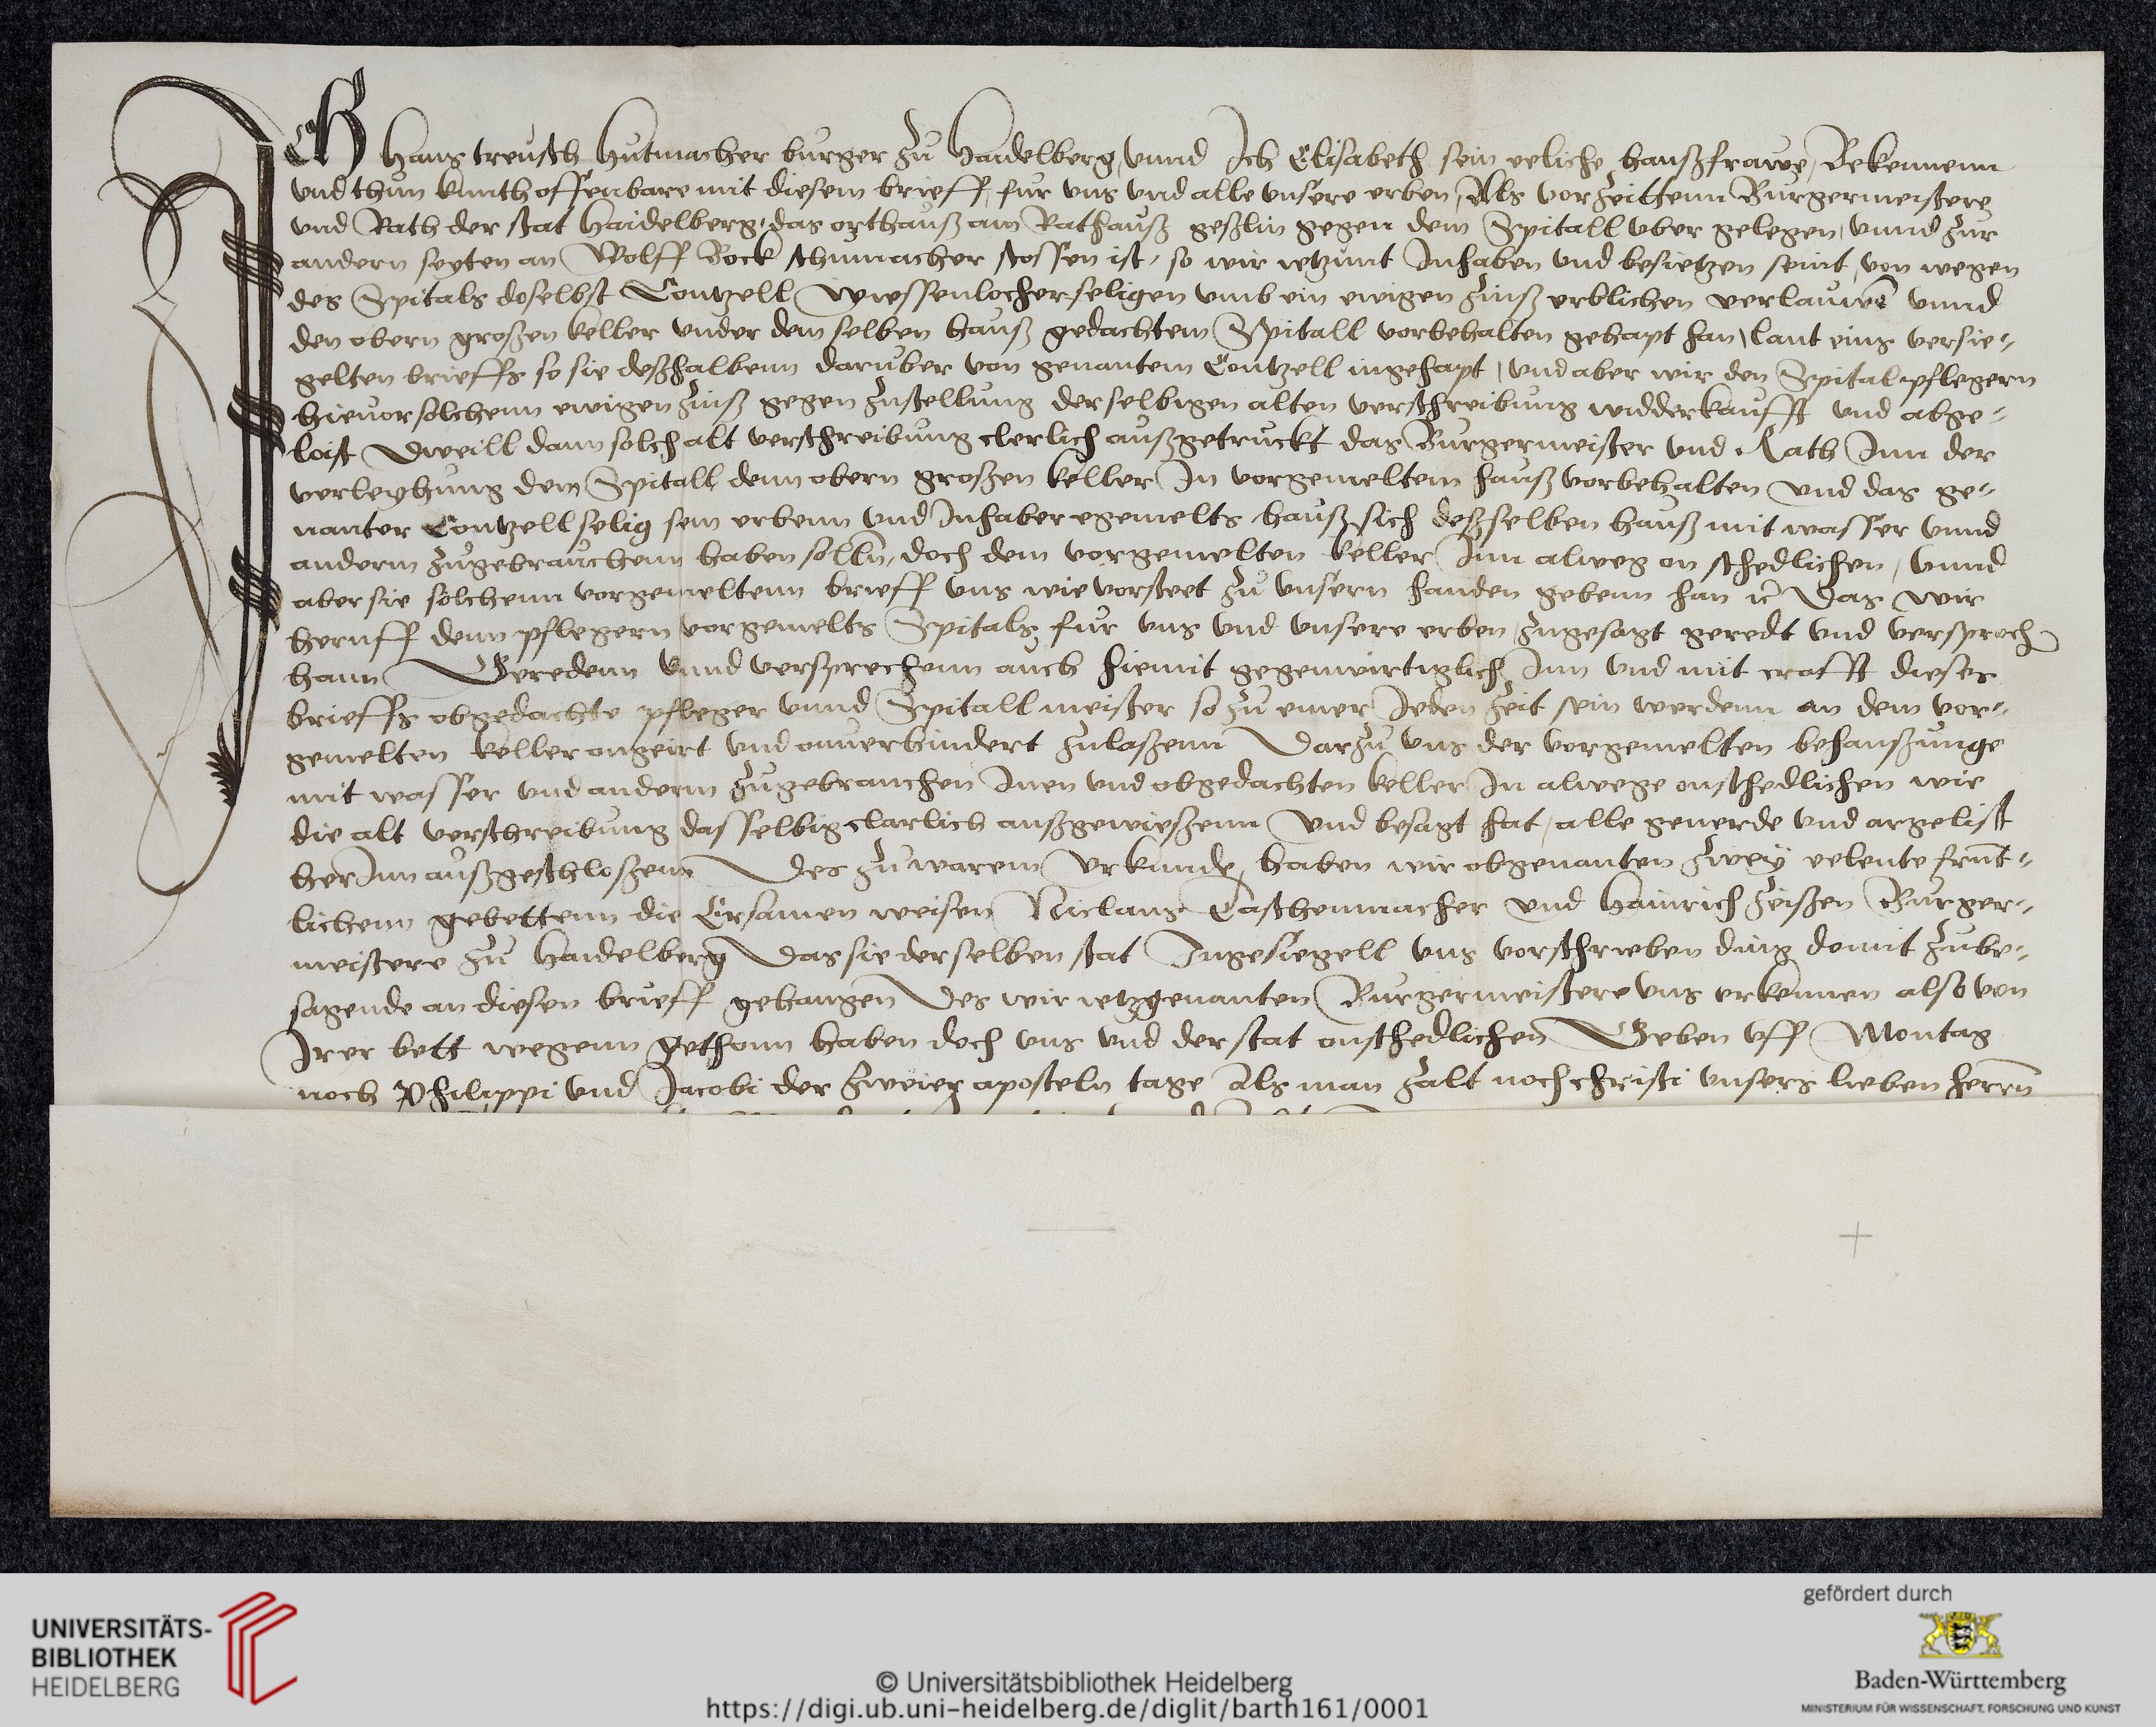 ICH Hans treusch Hutmacher burger zu Haidelberg, vnnd Ich Elisabeth sein eeliche haußfrawe, Bekennenn
vnd thun kunth offenbare mit diesem brieff, fur vns vnd alle vnsere erben, Als vorzeittenn Burgermeistere
vnd Rath der stat Haidelberg, das orthauß am Rathauß geßlin gegen dem Spitall vber gelegen, vnnd zur
andern seyten an Wolff Bock schumacher stossen ist, so wir ietzunt Inhaben vnd besietzen seint, von wegen
des Spitals doselbst Contzell Wiessenlocher seligen vmb ein ewigen zinß erblichen verlauwē vnnd
den obern großen keller vnder dem selben hauß gedachtem Spitall vorbehalten gehapt han, laut eins versie-
gelten brieffs so sie deßhalbenn daruber von genantem Contzell ingehapt, vnd aber wir den Spitalpflegern
hieuor solchenn ewigen zinß gegen zustellung derselbigen alten verschreibung widderkaufft vnd abge-
loist Dweill dann solch alt verschreibung clerlich außgetruckt das Burgermeister vnd Rath Inn der
verleyhung dem Spitall denn obern großen keller In vorgemeltem hauß vorbehalten vnd das ge-
nanter Contzell selig sein erbenn vnd Inhaber egemelts hauß sich deßselben hauß mit wasser vnnd
anderm zugebrauchenn haben solln, doch dem vorgemelten keller Inn alweg on schedlichen, vnnd
aber sie solchenn vorgemeltenn brieff vns wie vorsteet zu vnsern handen gebenn han Das wir
heruff denn pflegern vorgemelts Spitals fur vns vnd vnsere erben zugesagt geredt vnd versproch
hann Geredenn vnnd versprechenn auch hiemit gegenwirtiglich Inn vnd mit crafft dieses
brieffs obgedachte pfleger vnnd Spitallmeister so zu einer Ieden zeit sein werdenn an dem vor-
gemelten keller ongeirt vnd onuerhindert zulaßenn Darzu vns der vorgemelten behaußunge
mit wasser vnd anderm zugebrauchen Inen vnd obgedachten keller In alwege onschedlichen wie
die alt verschreibung dasselbig clarlich außgewießenn vnd besagt hat, alle geuerde vnd argelist
herInn außgeschloßenn Des zu warem Vrkunde, haben wir obgenanten zwey eeleute frunt-
lichenn gebettenn die Ersamen weisen Niclaus Taschenmacher vnd Hainrich zeißen Burger-
meistere zu Haidelberg Das sie derselben stat Ingesiegell vns vorschrieben ding domit zube-
sagende an diesen brieff gehangen Des wir ietzgenanten Burgermeistere vns erkennen also von
Irer bett wegenn gethonn haben doch vns vnd der stat onschedlichen Geben vff Montag
noch Philippi vnd Jacobi der zweier aposteln tage Als man zalt noch christi vnsers lieben herrn
UNIVERSITÄTS-
BIBLIOTHEK
HEIDELBERG
© Universitätsbibliothek Heidelberg
https://digi.ub.uni-heidelberg.de/diglit/barth161/0001
gefördert durch
Baden-Württemberg
MINISTERIUM FÜR WISSENSCHAFT, FORSCHUNG UND KUNST